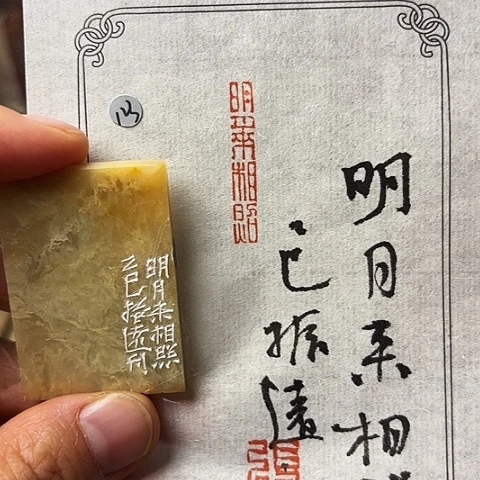 明月来相照
乙巳振遠刊
明月來相照
明月来相
乙巳振遠